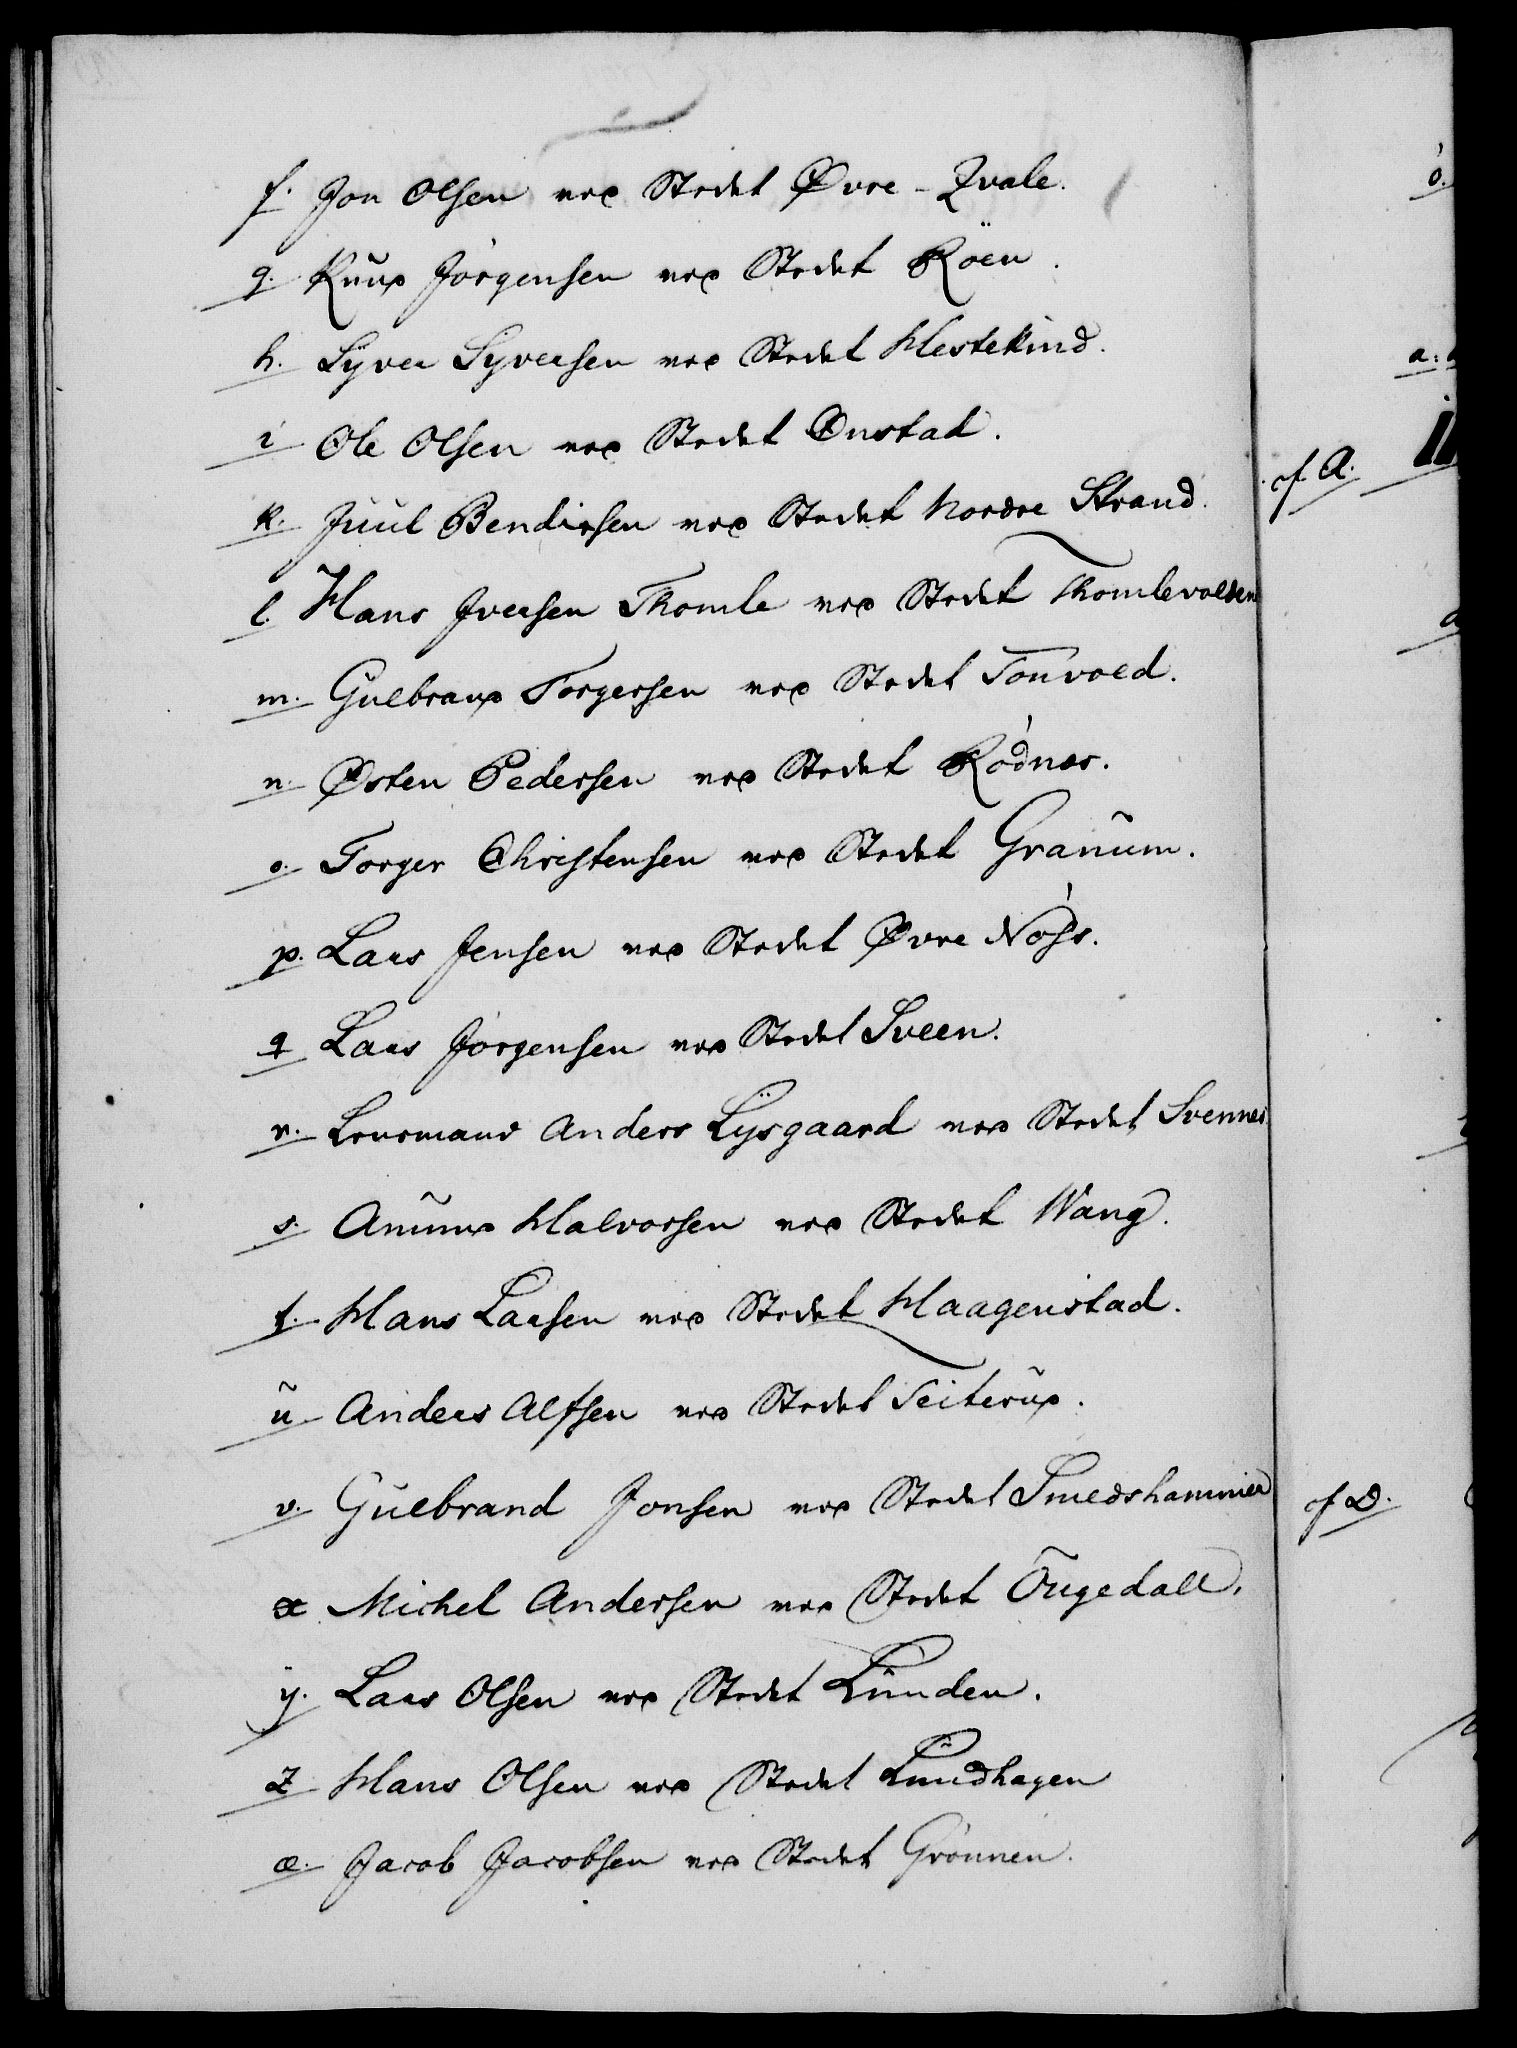 f. Jon Olsen ved Stedet Øvre-Qvale.
g. Knud Jörgensen ved Stedet Röen.
h. Syver Syversen ved Stedet Hestekind.
i Ole Olsen ved Stedet Onstad.
k. Juul Bendixsen ved Stedet Nordre Strand.
l. Hans Iversen Thomle ved Stedet Thomlevolden
m. Gulbrand Torgersen ved Stedet Tonvold.
n. Østen Pedersen ved Stedet Rödnæs.
o. Torger Christensen ved Stedet Granum.
p. Lars Jensen ved Stedet Øvre Nöss.
q Lars Jörgensen ved Stedet Sveen.
r. Lensmand Anders Lysgaard ved Stedet Svennes
s. Amund Halvorsen ved Stedet Wang.
t. Hans Larsen ved Stedet Haagenstad.
u Anders Alfsen ved Stedet Teiterud.
v. Gulbrand Jonsen ved Stedet Smedshammer
x Michel Andersen ved Stedet Ougedall.
y. Lars Olsen ved Stedet Lunden.
z Hans Olsen ved Stedet Lundhagen
æ. Jacob Jacobsen ved Stedet Grönnen.
ö.
a.
cf A.
cf D.